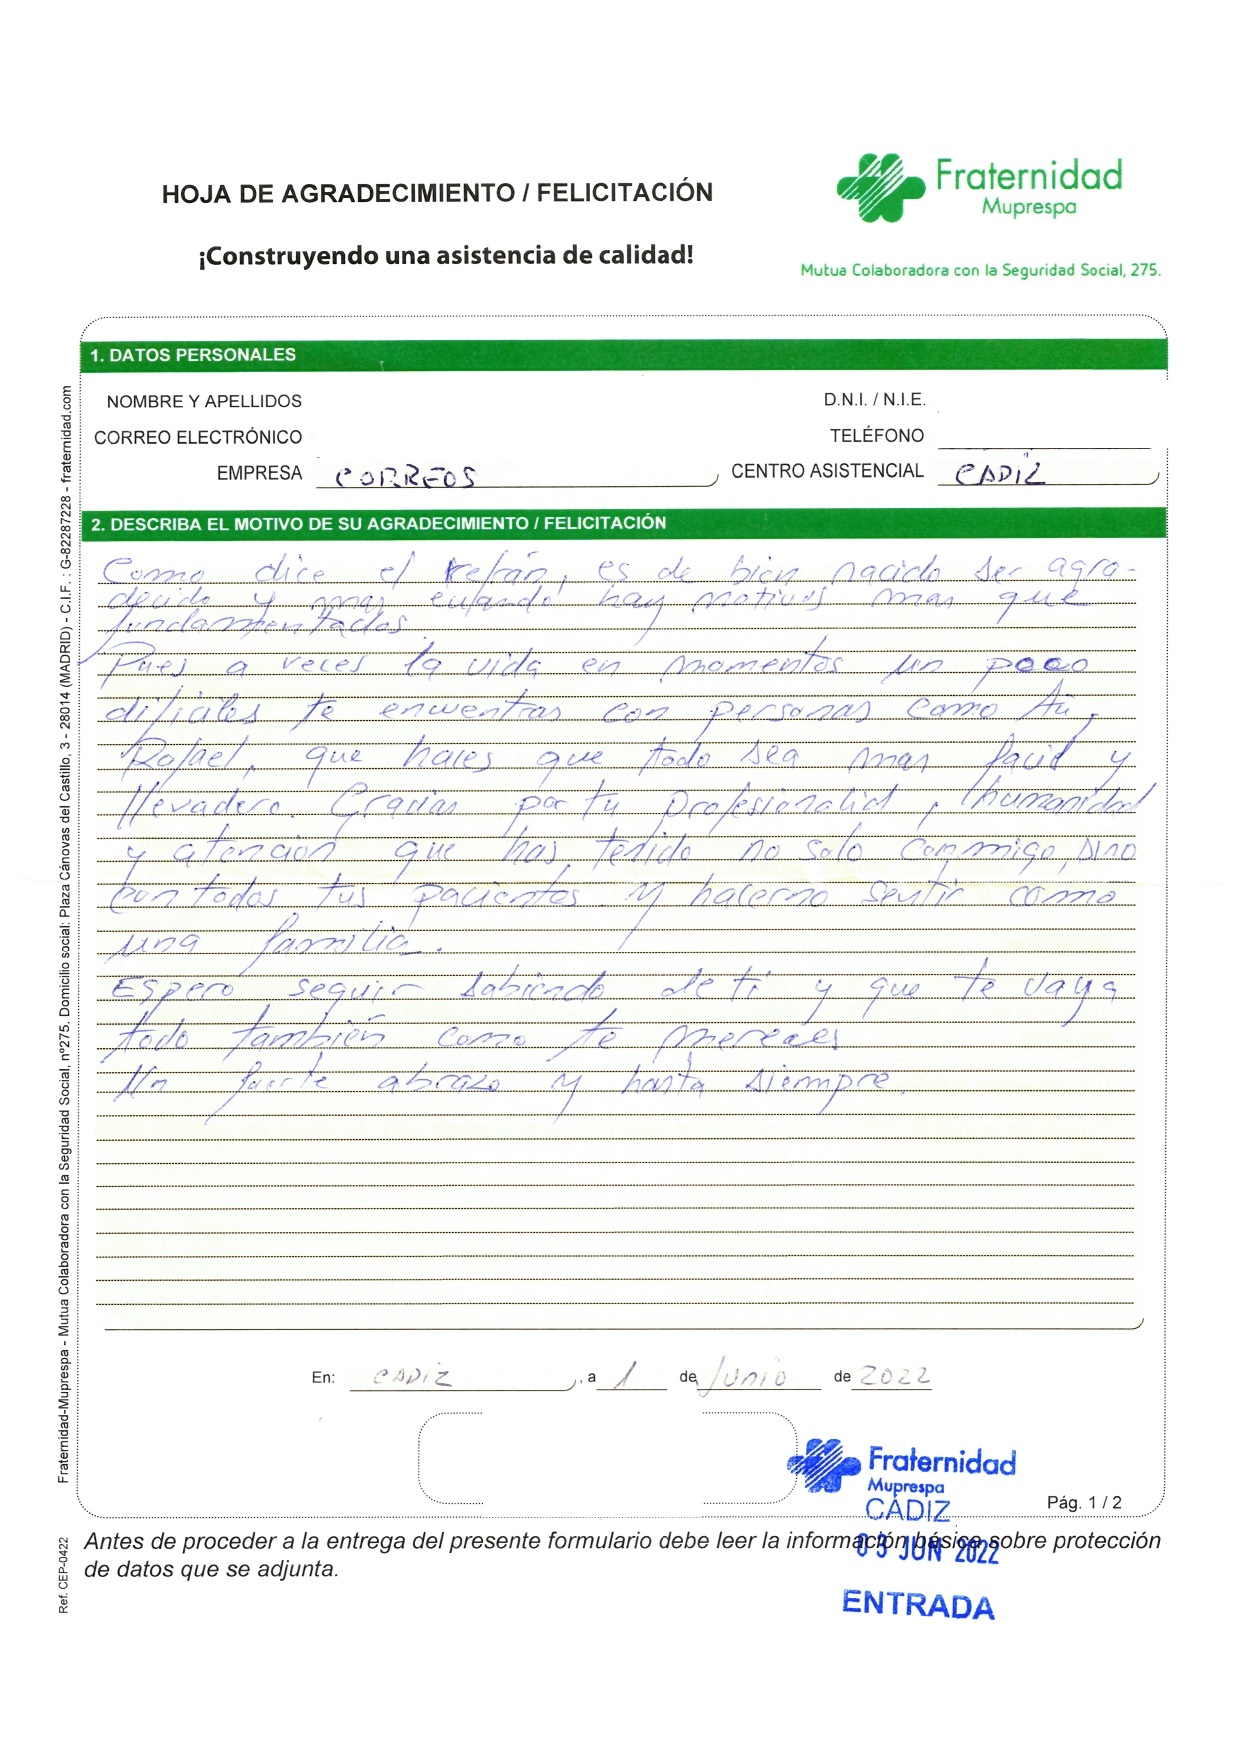 HOJA DE AGRADECIMIENTO / FELICITACIÓN
¡Construyendo una asistencia de calidad!
Fraternidad
Muprespa
Mutua Colaboradora con la Seguridad Social, 275.
1. DATOS PERSONALES
NOMBRE Y APELLIDOS
D.N.I. / N.I.E.
CORREO ELECTRÓNICO
TELÉFONO
EMPRESA CORREOS
CENTRO ASISTENCIAL CADIZ
2. DESCRIBA EL MOTIVO DE SU AGRADECIMIENTO / FELICITACIÓN
Como dice el refrán, es de bien nacido ser agra-
decido y mas cuando hay motivos mas que
fundamentados
Pues a veces la vida en momentos un poco
dificiles te encuentras con personas como tú,
Rafael, que haces que todo sea mas facil y
llevadero. Gracias por tu profesionalid, humanidad
y atención que has tenido no solo conmigo, sino
con todos tus pacientes y hacerno sentir como
una familia.
Espero seguir sabiendo de ti y que te vaya
todo también como te mereces
Un fuerte abrazo y hasta siempre.
En: CADIZ, a 1 de Junio de 2022
Fraternidad
Muprespa
CÁDIZ
03 JUN 2022
ENTRADA
Pág. 1 / 2
Antes de proceder a la entrega del presente formulario debe leer la información básica sobre protección
de datos que se adjunta.
Fraternidad-Muprespa - Mutua Colaboradora con la Seguridad Social, nº275. Domicilio social: Plaza Cánovas del Castillo, 3 - 28014 (MADRID) - C.I.F. : G-82287228 - fraternidad.com
Ref. CEP-0422